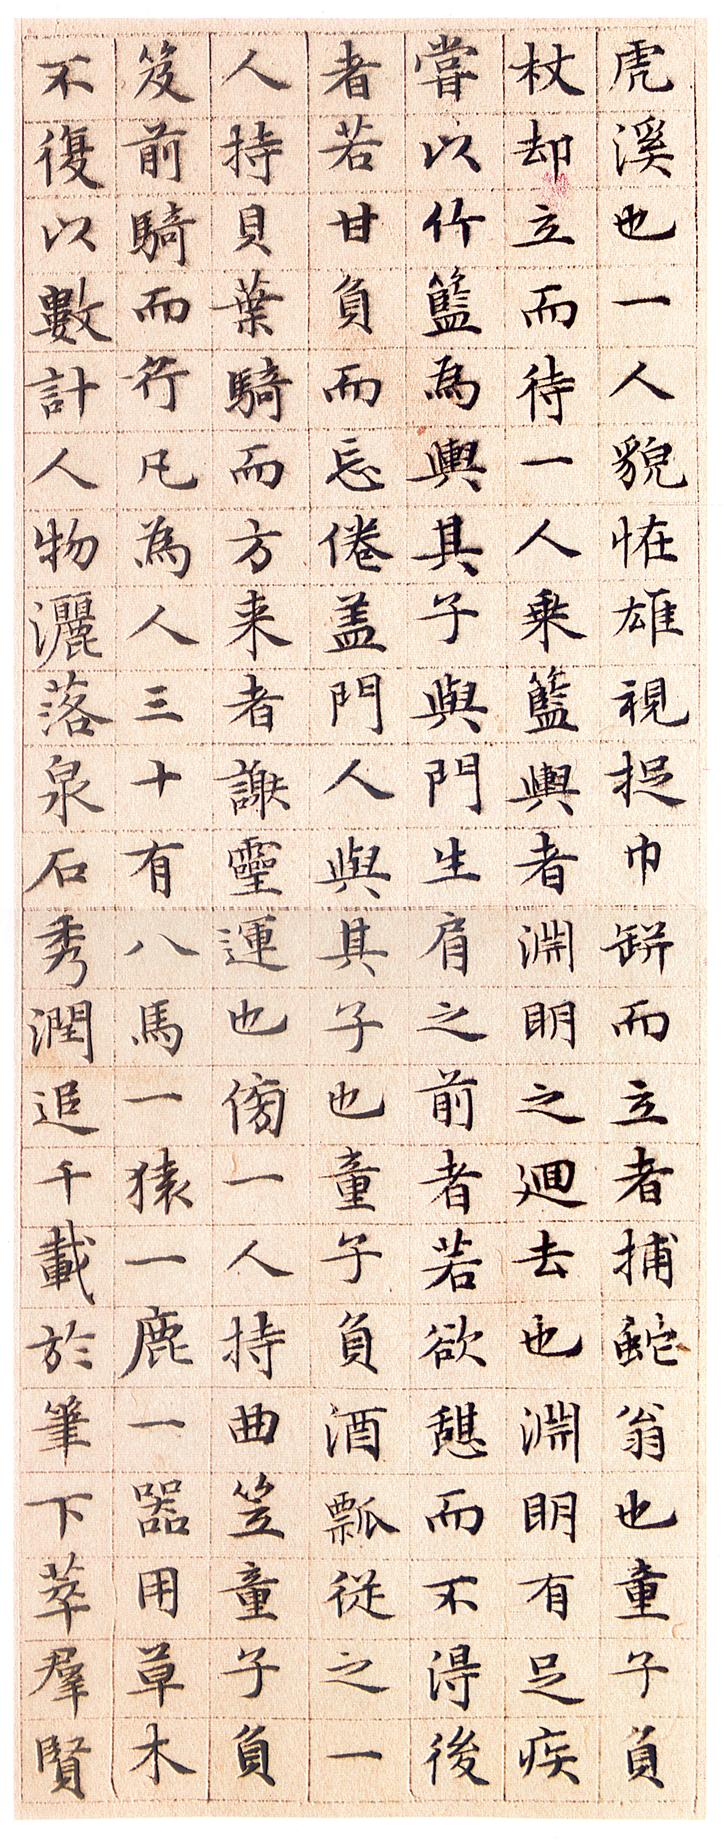 虎溪也一人貌恠雄視捉巾缾而立者捕蛇翁也童子負
杖却立而待一人乗籃輿者淵明之迴去也淵明有足疾
嘗以竹籃為輿其子與門生肩之前者若欲憩而不得後
者若甘負而忘倦盖門人與其子也童子負酒瓢從之一
人持貝葉騎而方来者謝靈運也傍一人持曲笠童子負
笈前騎而行凡為人三十有八馬一猿一鹿一器用草木
不復以數計人物灑落泉石秀潤追千載於筆下萃羣賢